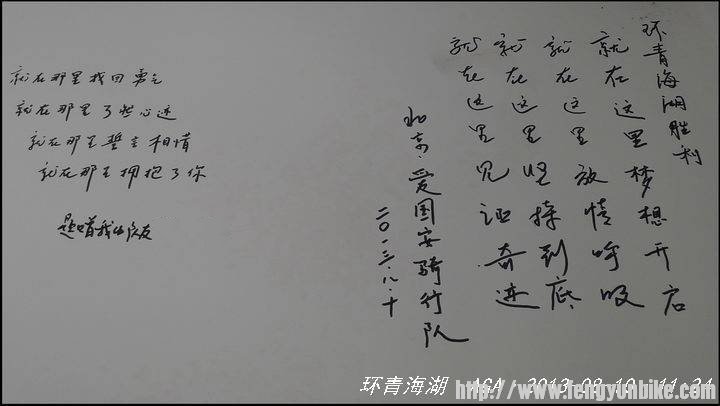 环青海湖胜利
就在这里梦想开启
就在这里放情呼吸
就在这里坚持到底
就在这里见证奇迹
北京·爱国安骑行队
二〇一三.八.十
就在那里找回勇气
就在那里了然心迹
就在那里誓言相惜
就在那里拥抱了你
题赠我的友
环青海湖 AGA 2013-08-10 11:34
http://www.fengyunbike.com